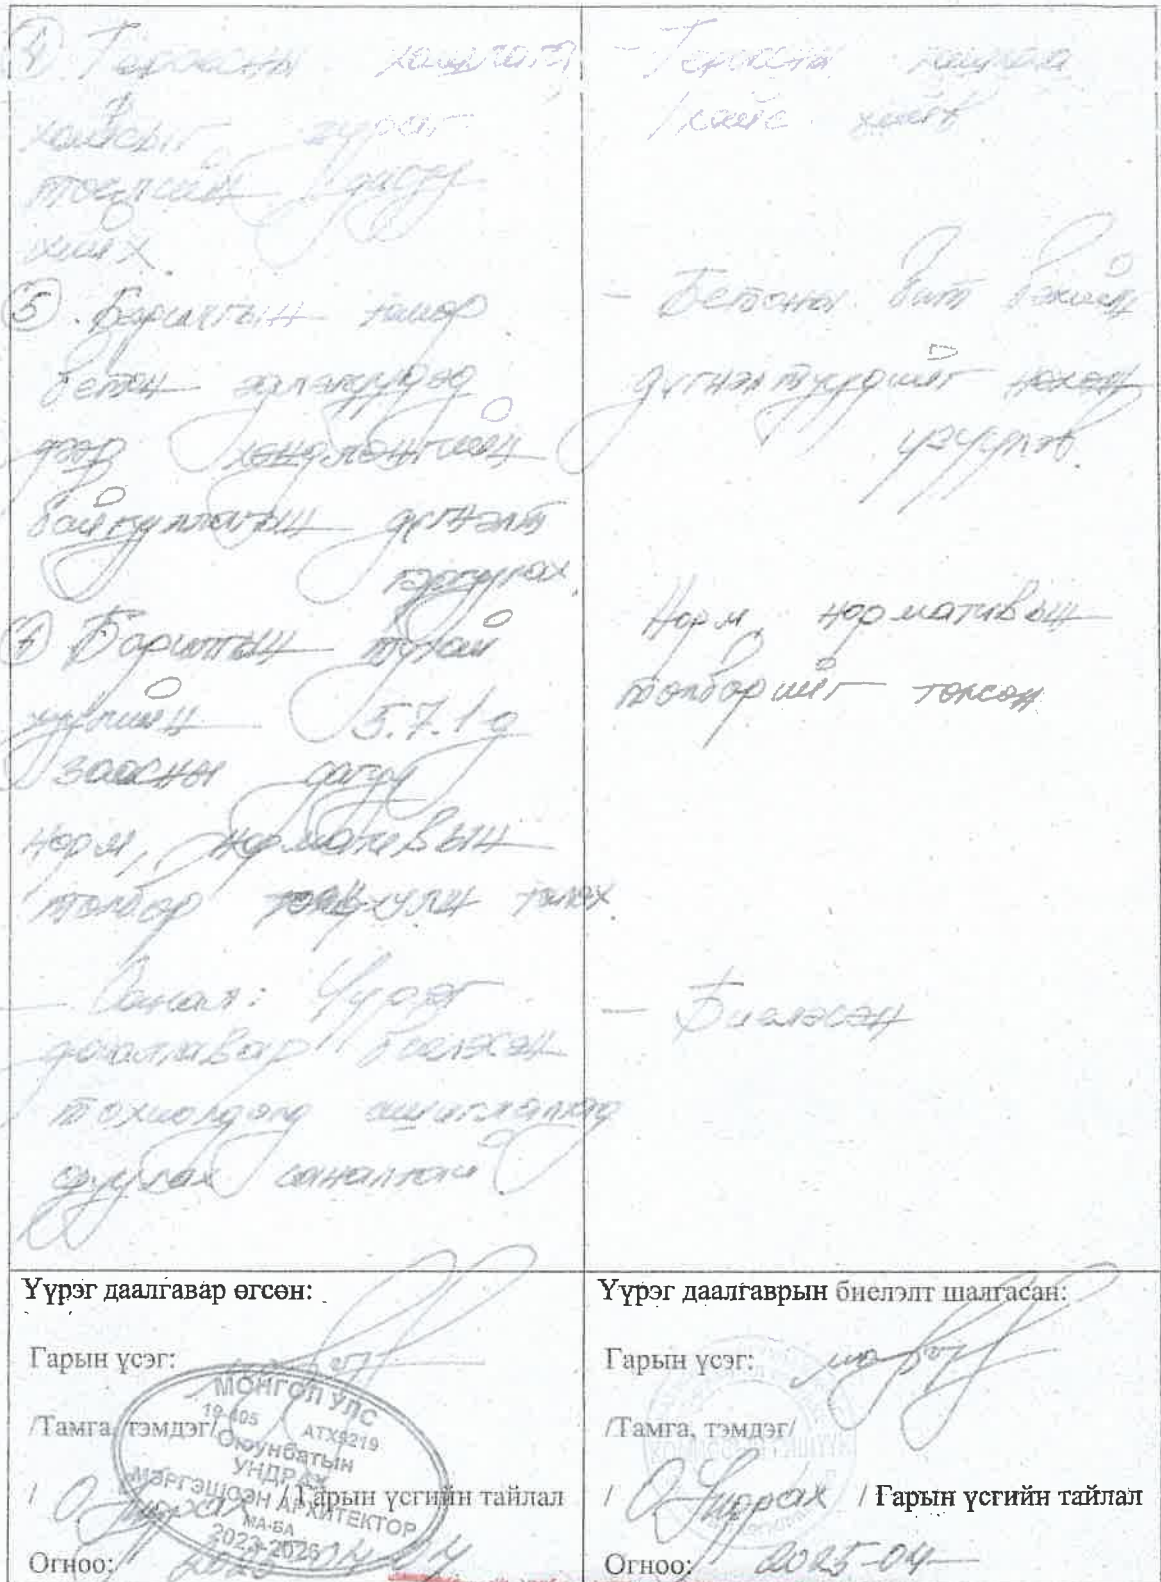 ④ Террасны хашлага
хайсыг зураг
төслийн дагуу
хийх.
⑤. Барилгын төмөр
бетон эдлэхүүдэд
дээр хөндлөнгийн
байгууллагын дүгнэлт
гаргуулах.
Барилгын тухай
хуулийн 5.7.1 д
заасны дагуу
норм, нормативын
төлбөр төлөх
- Санал: Үүрэг
даалгавар биелэсэн
тохиолдолд ашиглалтад
оруулах саналтай
- Террасны хашлага
хайс хийв
- Бетоны бат бэхийн
дүгнэлтүүдийг нөхөн
үзүүлэв.
Норм, нормативын
төлбөрийг төлсөн
- Биелэсэн
Үүрэг даалгавар өгсөн:
Гарын үсэг:
/Тамга, тэмдэг/
МОНГОЛ УЛС
АТХ9219
Оюунбатын
УНДРАХ
МЭРГЭШСЭН АРХИТЕКТОР
МА-БА
2023-2026
/ О.Ундрах / Гарын үсгийн тайлал
Огноо:
Үүрэг даалгаврын биелэлт шалгасан:
Гарын үсэг:
/Тамга, тэмдэг/
/ О.Ундрах / Гарын үсгийн тайлал
Огноо: 2025-04-